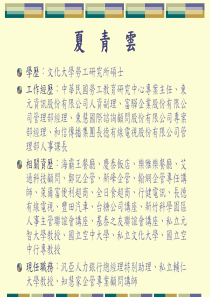 夏青雲
學歷：文化大學勞工研究所碩士
工作經歷：中華民國勞工教育研究中心專案主任、東
元資訊股份有限公司人資副理、富驛企業股份有限公司
管理部經理、東慧國際諮詢顧問股份有限公司專案
部經理、和信傳播集團長德有線電視股份有限公司
管理部人事課長
相關資歷：海霸王餐廳、慶泰飯店、樂雅樂餐廳、艾
通科技顧問、新峰企管、翰鼎企管專任講
師、萊爾富便利超商、全日食超商、行健電訊、長德
有線電視、豐田汽車、台糖公司講座、新竹科學園區
人事主管聯誼會講座、基泰之友聯誼會講座、私立元
智大學教授、國立空中大學、私立文化大學、國立空
中行專教授
現任職務：汎亞人力銀行總經理特別助理、私立輔仁
大學教授、知慧家企管專業顧問講師